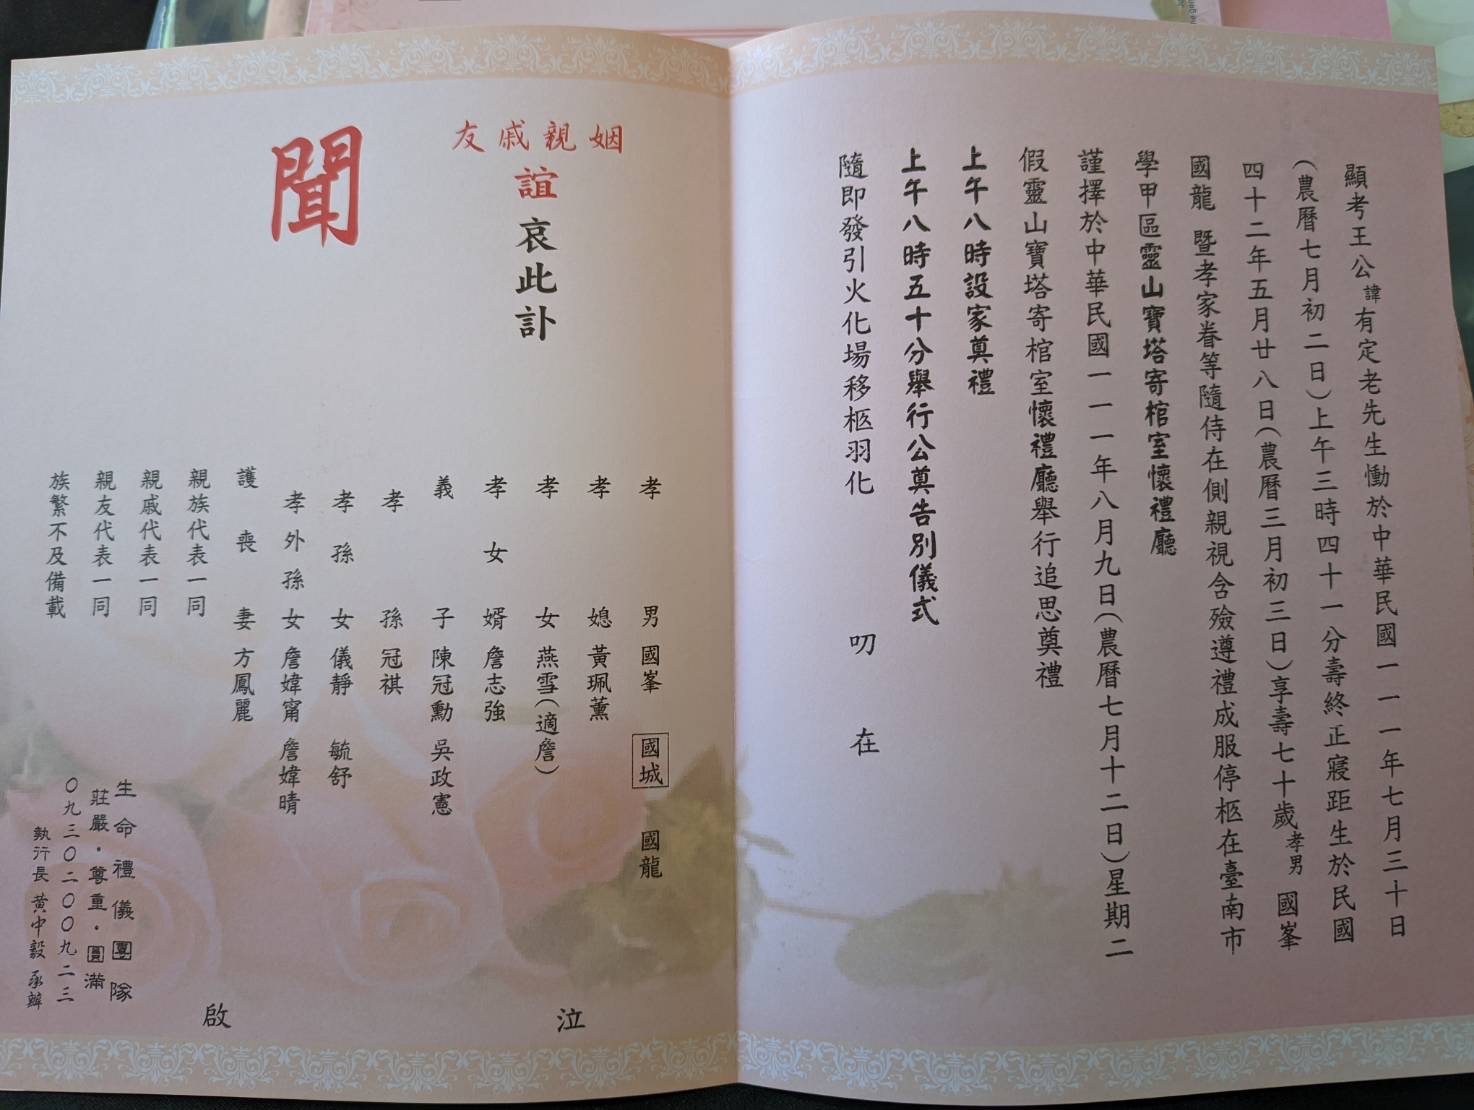 顯考王公諱有定老先生慟於中華民國一一一年七月三十日
(農曆七月初二日)上午三時四十一分壽終正寢距生於民國
四十二年五月廿八日(農曆三月初三日)享壽七十歲孝男 國峯
國龍 暨孝家眷等隨侍在側親視含殮遵禮成服停柩在臺南市
學甲區靈山寶塔寄棺室懷禮廳
謹擇於中華民國一一一年八月九日(農曆七月十二日)星期二
假靈山寶塔寄棺室懷禮廳舉行追思奠禮
上午八時設家奠禮
上午八時五十分舉行公奠告別儀式
隨即發引火化場移柩羽化 叨 在
姻親戚友
誼 哀此訃
聞
孝男 國峯 國城 國龍
孝媳 黃珮薰
孝女 燕雪(適詹)
孝女婿 詹志強
義子 陳冠勳 吳政憲
孝孫 冠祺
孝孫女 儀靜 毓舒
孝外孫女 詹媁甯 詹媁晴
護喪妻 方鳳麗
親族代表一同
親戚代表一同
親友代表一同
族繁不及備載
泣 啟
生命禮儀團隊
莊嚴・尊重・圓滿
〇九三〇二〇〇九二三
執行長 黃中毅 承辦